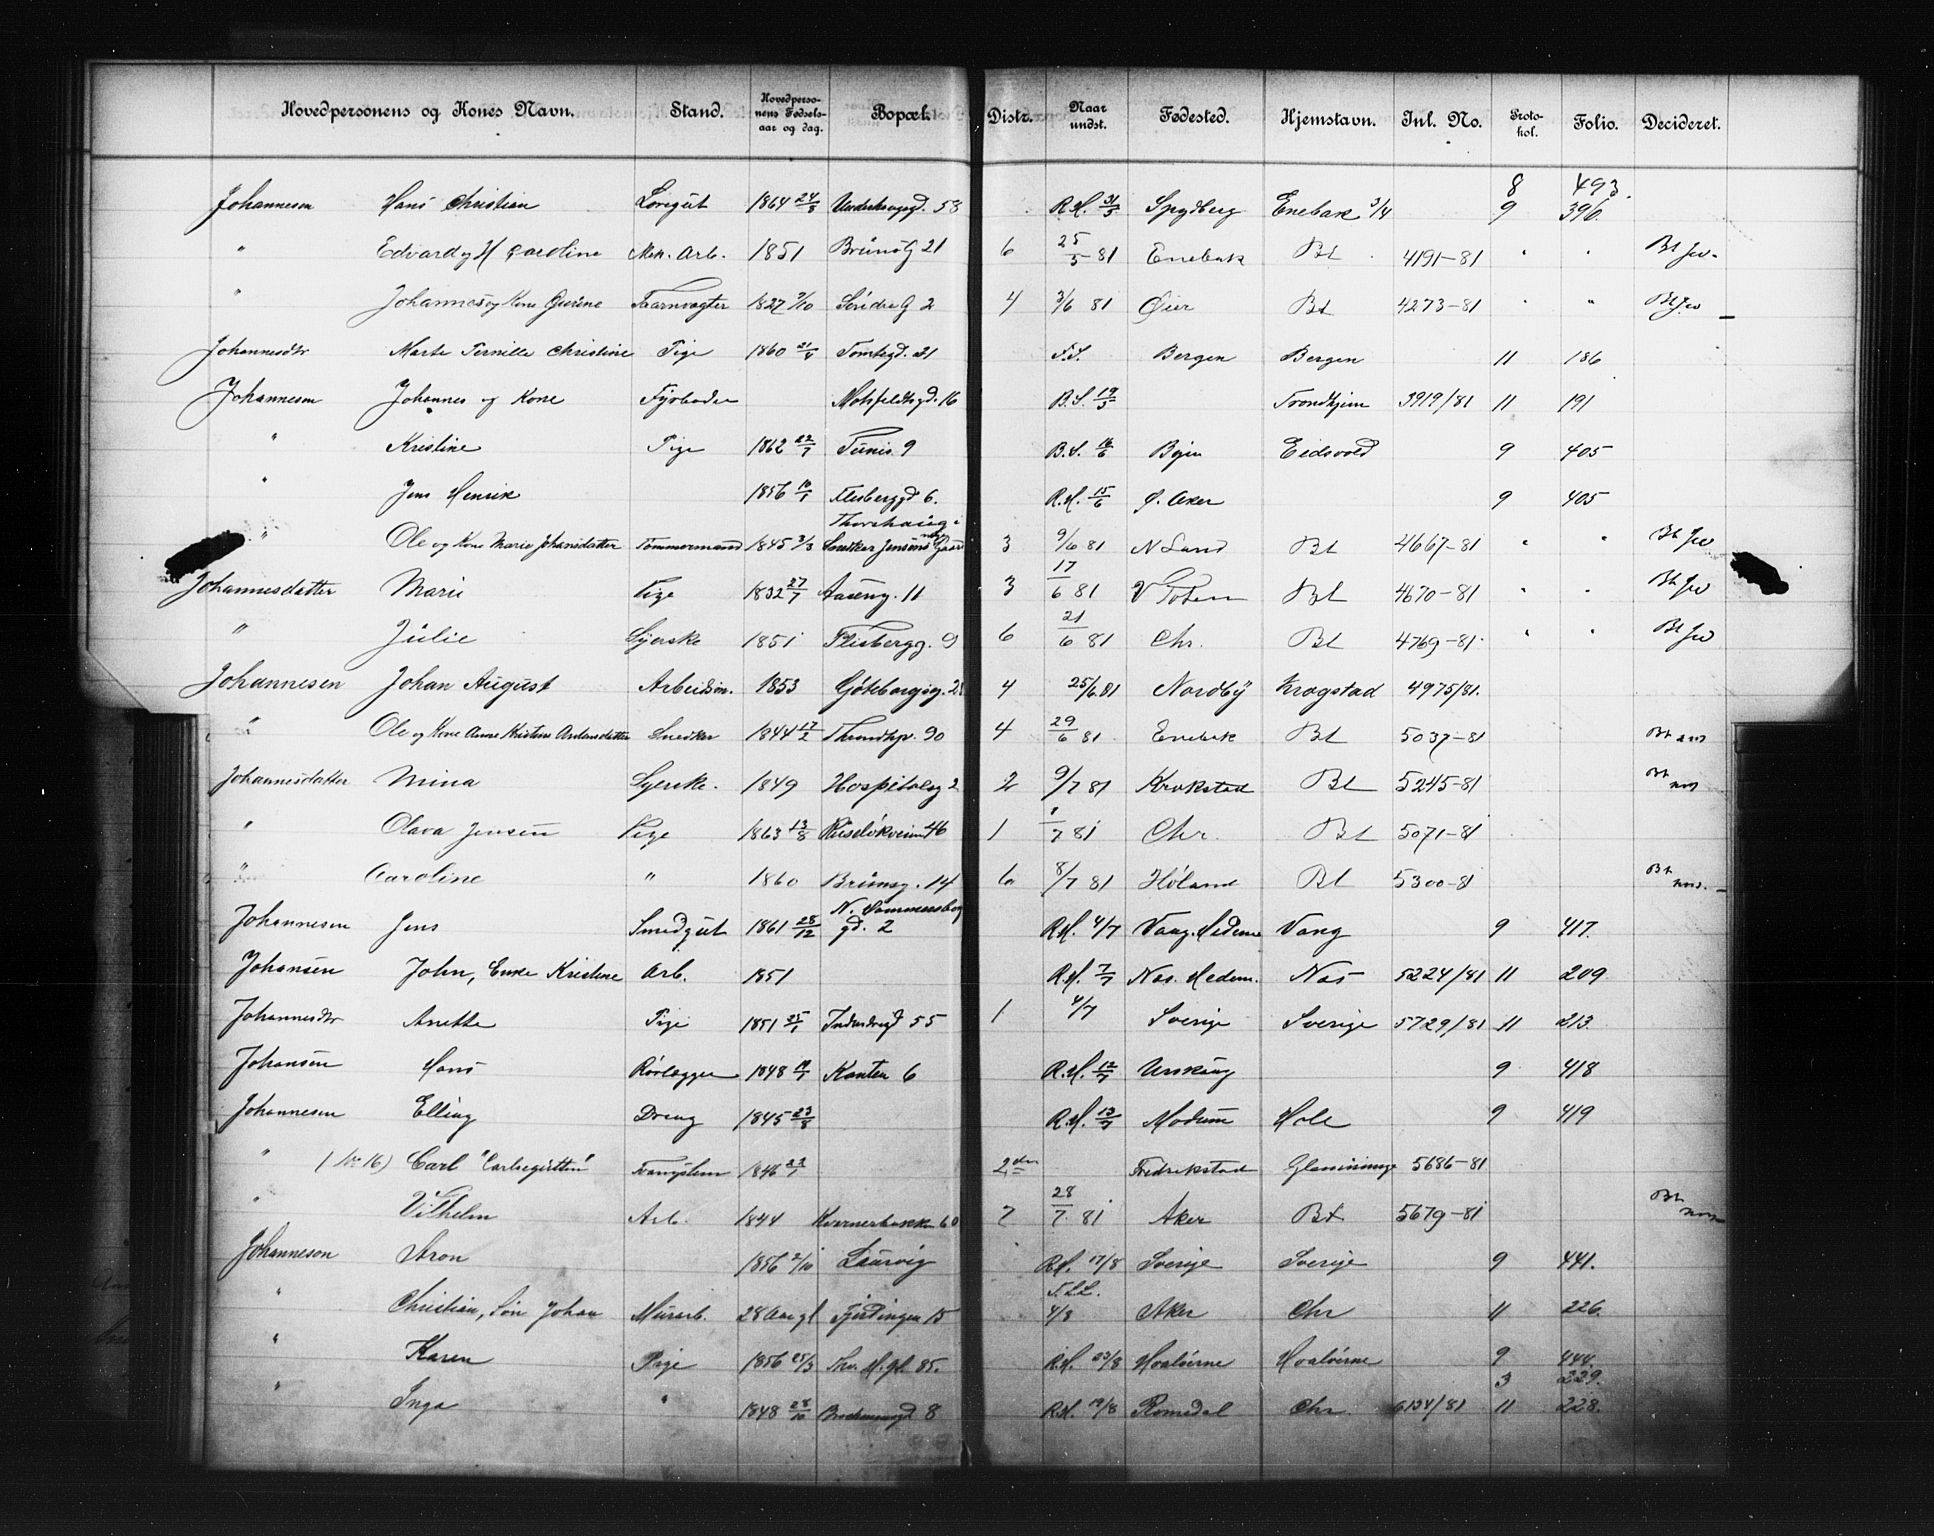 Hovedpersonens og Kones Navn. Stand. Hovedpersonens Fødselsaar og dag. Bopæl. Distr. Naar undst. Fødested. Hjemstavn. Inl. No. Protokol. Folio. Decideret.
8 493.
Johannesen Hans Christian Løsgut 1864 24/8 53 R.H. 31/5 Spydberg Enebak 3/4 9 396.
" Edvard og H Caroline Mek. Arb. 1851 Brünsg 21 6 25/5-81 Enebak Bt 4191-81 " " Bt Jev.
" Johannes og Kone Gurine Taarnvogter 1827 7/10 Søndre G 2 4 3/6 81 Øier Bt 4273-81 " " Bt Jev
Johannesdtr Marte Pernille Christine Pige 1860 21/4 Tomtegd. 21 F.S. Bergen Bergen 11 186
Johannesen Johannes og Kone Fyrbøder Motzfeldtsgd. 16 B.S. 19/5 Trondhjem 3919/81 11 191
" Kristine Pige 1862 22/7 Tunis 9 B.S. 16/6 Eidsvold 9 405
" Jens Henrik 1856 10/1 Flisberggd 6. R.H. 15/6 Ø. Aker 9 405
Thorshaug
" Ole og Kone Marie Johansdatter Tømmermand 1845 3/3 Snedker Jensens Gaard 3 9/6 81 N Land Bt 4667-81 " " Bt Jev
Johannesdatter Marie Pige 1832 27/7 Aaseng. 11 3 17/6 81 V Toten Bt 4670-81 " " Bt Jev
" Julie Syerske 1851 Flisbergg. 9 6 21/6 81 Chr. Bt 4769-81 " " Bt Jev
Johannesen Johan August Arbeidsm. 1853 Göteborgsg. 4 25/6 81 Nordby Krogstad 4975/81.
" Ole og Kone Anne Kristine Antonsdatter Snedker 1844 17/2 Throndhj. 90 4 29/6 81 Enebak Bt 5037-81 Bt
Johannesdatter Mina Syerske. 1849 Hospitalsg 2 2 9/7 81 Krokstad Bt 5245-81 Bt
" Olava Jensen Pige 1863 13/8 Ruseløkveien 46 1 1/7 81 Chr. Bt 5071-81
" Caroline " 1860 Brünsg. 14 6 8/7 81 Høland Bt 5300-81 Bt
N. Sommersberg
Johannesen Jens Smedgut 1861 28/12 gd. 2 R.H. 4/7 Vang. Hedem Vang 9 417.
Johansen John, Enke Kristine Arb. 1851 R.H. 7/7 Næs. Hedem. Næs 5224/81 11 209
Johannesdtr Anette Pige 1851 25/1 Industrigd 55 1 4/7 Sverige Sverige 5729/81 11 213.
Johansen Hans Rørlægger 1848 19/1 Kanten 6 R.H. 12/7 Urskoug 9 418
Johannesen Elling Dreng 1845 23/8 R.H. 13/7 Modum Hole 9 419
" (No 16) Carl "Carlsegutten" Tvangslem 1846 23/1 2den Fredrikstad Glemminge 5686-81
" Vilhelm Arb. 1844 Kværnerbakken 60 7 28/7. 81 Aker Bt 5679-81 Bt
Johanneson Aron 1856 2/10 Laurvig R.H. 17/8 Sverige Sverige 9 441.
" Christian, Søn Johan Murarb. 28 Aar gl Fjerdingen 15 F.S.L. 4/8 Aker Chr 11 226.
" Karen Pige 1856 25/3 Thv. M. gt. 85. R.H. 23/8 Hvaløerne Hvaløerne 9 444.
3 229.
" Inga " 1848 28/10 8 R.H. 19/8 Romedal Chr 6134/81 11 228.